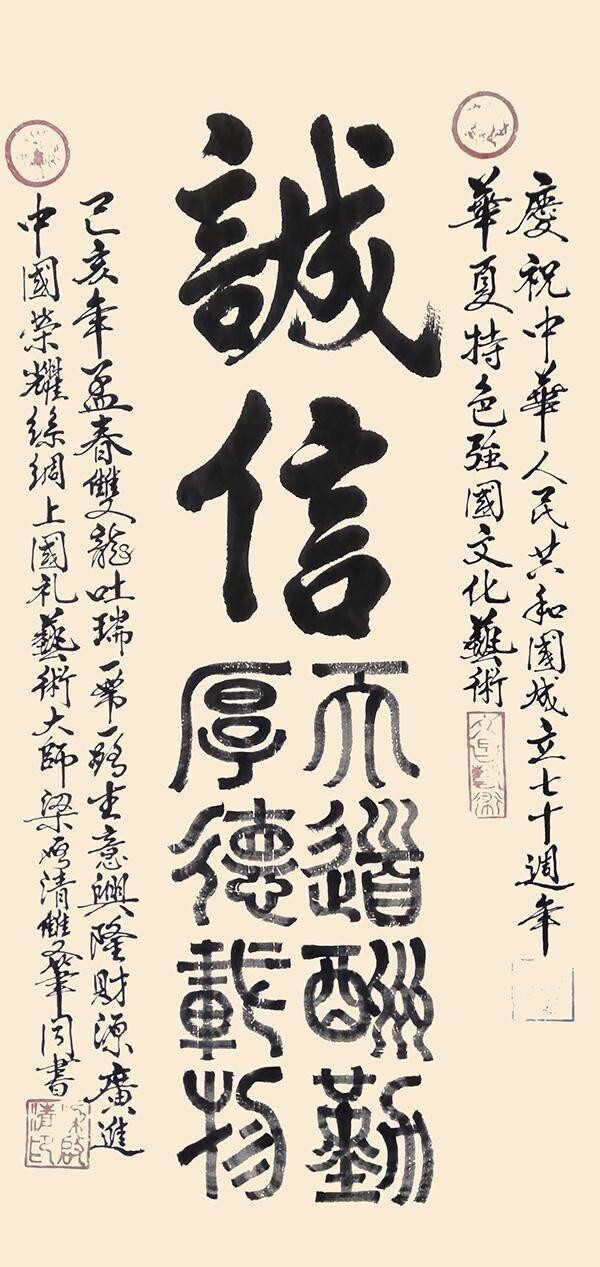 慶祝中華人民共和國成立七十週年
華夏特色強國文化藝術
誠信
天道酬勤
厚德載物
己亥年孟春雙龍吐瑞一帶一路生意興隆財源廣進
中國榮耀絲綢上國礼藝術大師梁啟清雙筆同書
梁啟清印